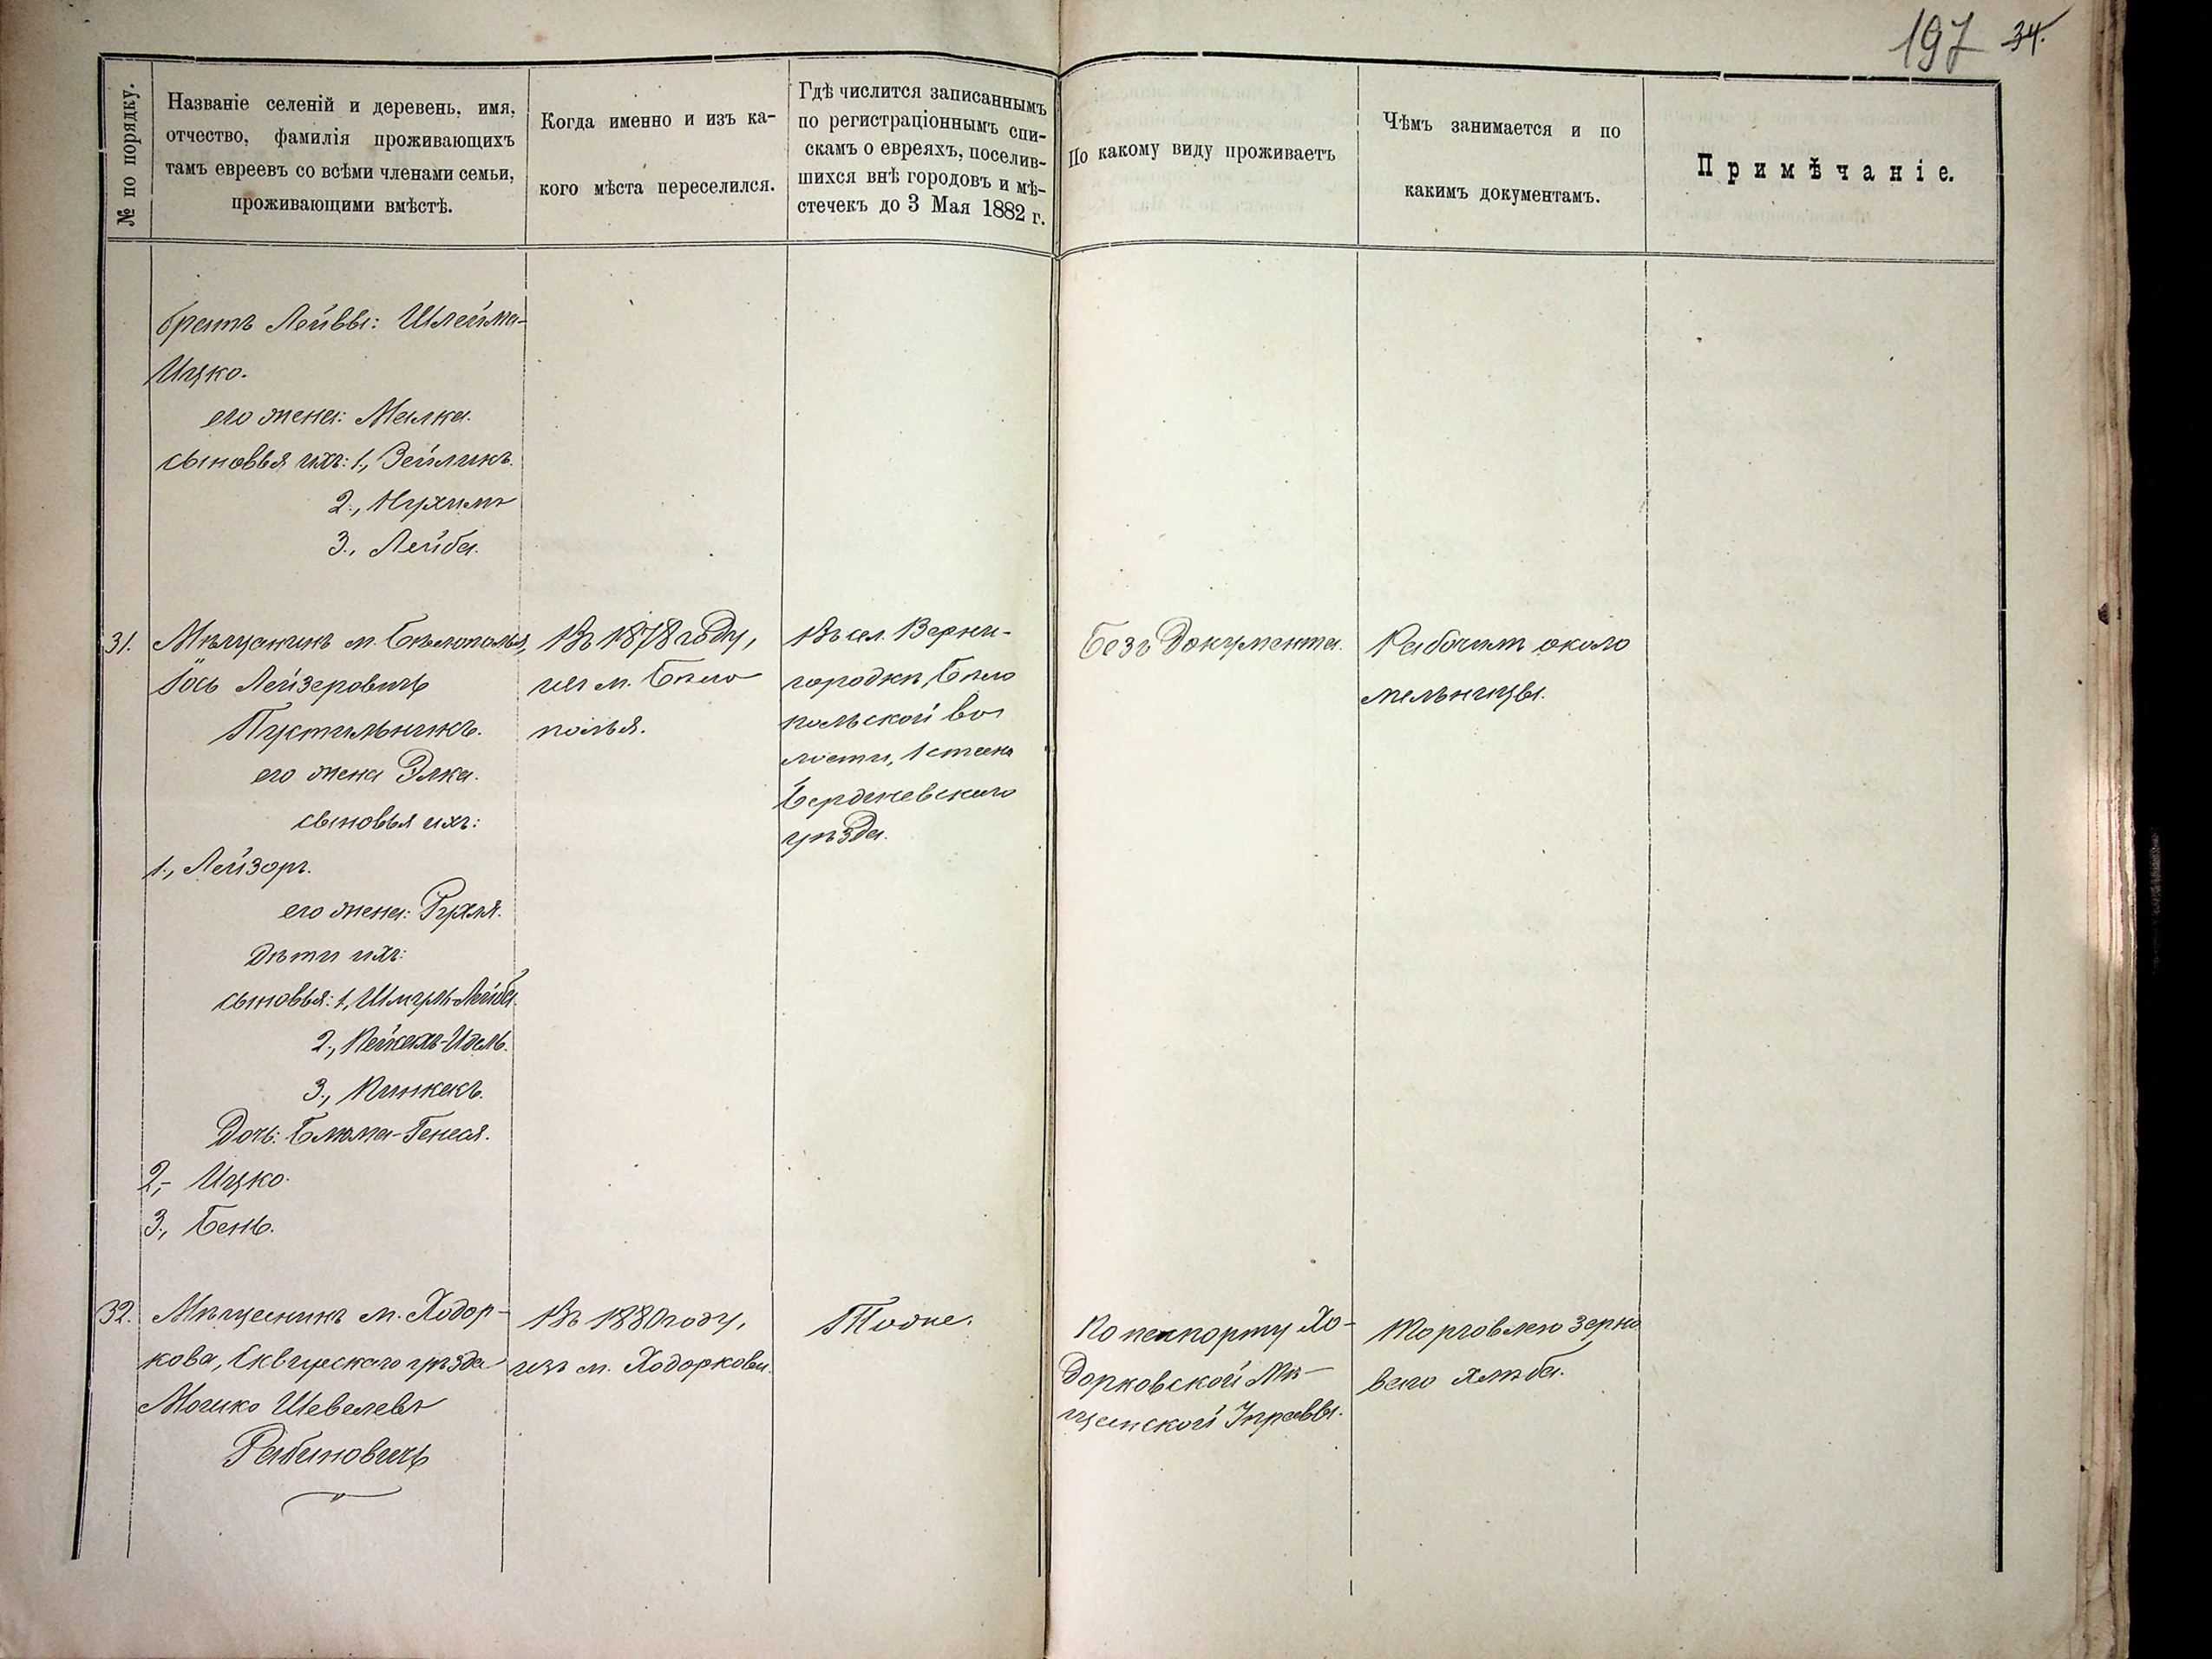 197 34.
№ по порядку.
Названіе селеній и деревень, имя,
отчество, фамилія проживающихъ
тамъ евреевъ со всѣми членами семьи,
проживающими вмѣстѣ.
Когда именно и изъ ка-
кого мѣста переселился.
Гдѣ числится записаннымъ
по регистраціоннымъ спи-
скамъ о евреяхъ, поселив-
шихся внѣ городовъ и мѣ-
стечекъ до 3 Мая 1882 г.
По какому виду проживаетъ
Чѣмъ занимается и по
какимъ документамъ.
Примѣчаніе.
братъ Лейбы: Шлейма-
Ицко.
его жена: Малка.
сыновья ихъ: 1., Зейликъ.
2., Нухимъ
3., Лейба.
31.
Мѣщанинъ м. Бѣлополья,
Іось Лейзеровичъ
Пустильникъ.
его жена Элка.
сыновья ихъ:
1., Лейзоръ.
его жена: Рухля.
дѣти ихъ:
сыновья: 1., Шмуль-Лейба.
2.,
3.,
Дочь: Блюма-Генеся.
2., Ицко.
3., Бень.
Въ 1878 году,
изъ м. Бѣло
полья.
Въ сел. Верни-
городкѣ, Бѣло
польской во
лости, 1 стана
Бердичевскаго
уѣзда.
Безъ документа.
Рабочимъ около
мельницы.
32.
Мѣщанинъ м. Ходор-
кова, Сквирскаго уѣзда
Мошко Шевелевъ
Рабиновичъ
Въ 1880 году,
изъ м. Ходоркова.
Тоже.
По паспорту Хо-
дорковской Мѣ-
щанской Управы.
Торговлею зерно
ваго хлѣба.